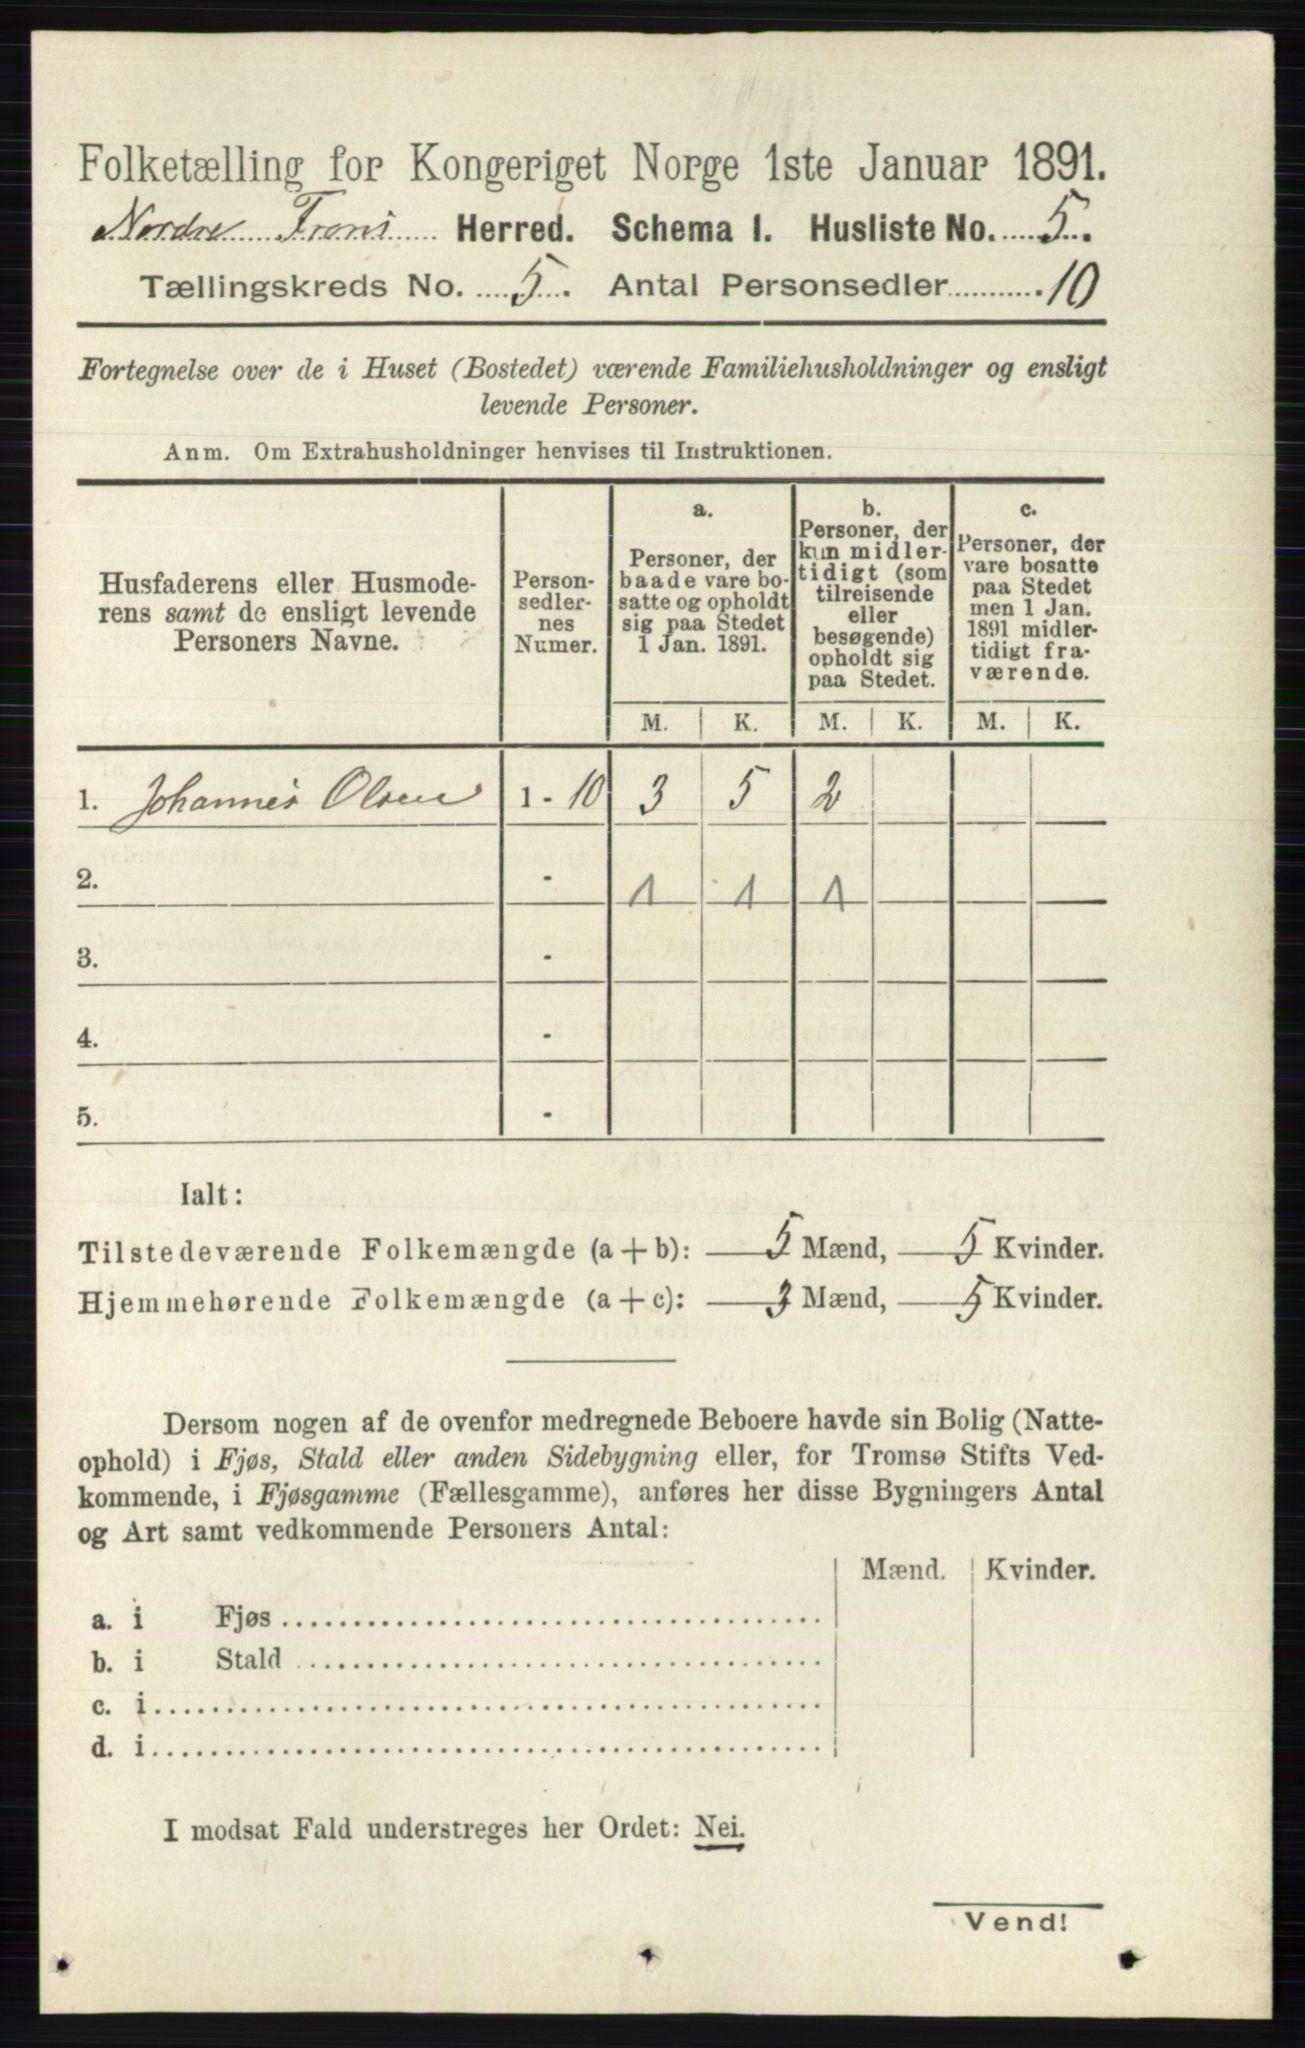 Folketælling for Kongeriget Norge 1ste Januar 1891.
Nordre Frons Herred. Schema I. Husliste No. 5.
Tællingskreds No. 5. Antal Personsedler 10
Fortegnelse over de i Huset (Bostedet) værende Familiehusholdninger og ensligt
levende Personer.
Anm. Om Extrahusholdninger henvises til Instruktionen.
Husfaderens eller Husmode-
rens samt de ensligt levende
Personers Navne.
Person-
sedler-
nes
Numer.
a.
Personer, der
baade vare bo-
satte og opholdt
sig paa Stedet
1 Jan. 1891.
b.
Personer, der
kun midler-
tidigt (som
tilreisende
eller
besøgende)
opholdt sig
paa Stedet.
c.
Personer, der
vare bosatte
paa Stedet
men 1 Jan.
1891 midler-
tidigt fra-
værende.
M. K. M. K. M. K.
1. Johannes Olsen 1 - 10 3 5 2
2. - 1 1 1
3. -
4. -
5. -
Ialt:
Tilstedeværende Folkemængde (a + b): 5 Mænd, 5 Kvinder.
Hjemmehørende Folkemængde (a + c): 3 Mænd, 5 Kvinder.
Dersom nogen af de ovenfor medregnede Beboere havde sin Bolig (Natte-
ophold) i Fjøs, Stald eller anden Sidebygning eller, for Tromsø Stifts Ved-
kommende, i Fjøsgamme (Fællesgamme), anføres her disse Bygningers Antal
og Art samt vedkommende Personers Antal:
Mænd. Kvinder.
a. i Fjøs
b. i Stald
c. i
d. i
I modsat Fald understreges her Ordet: Nei.
Vend!